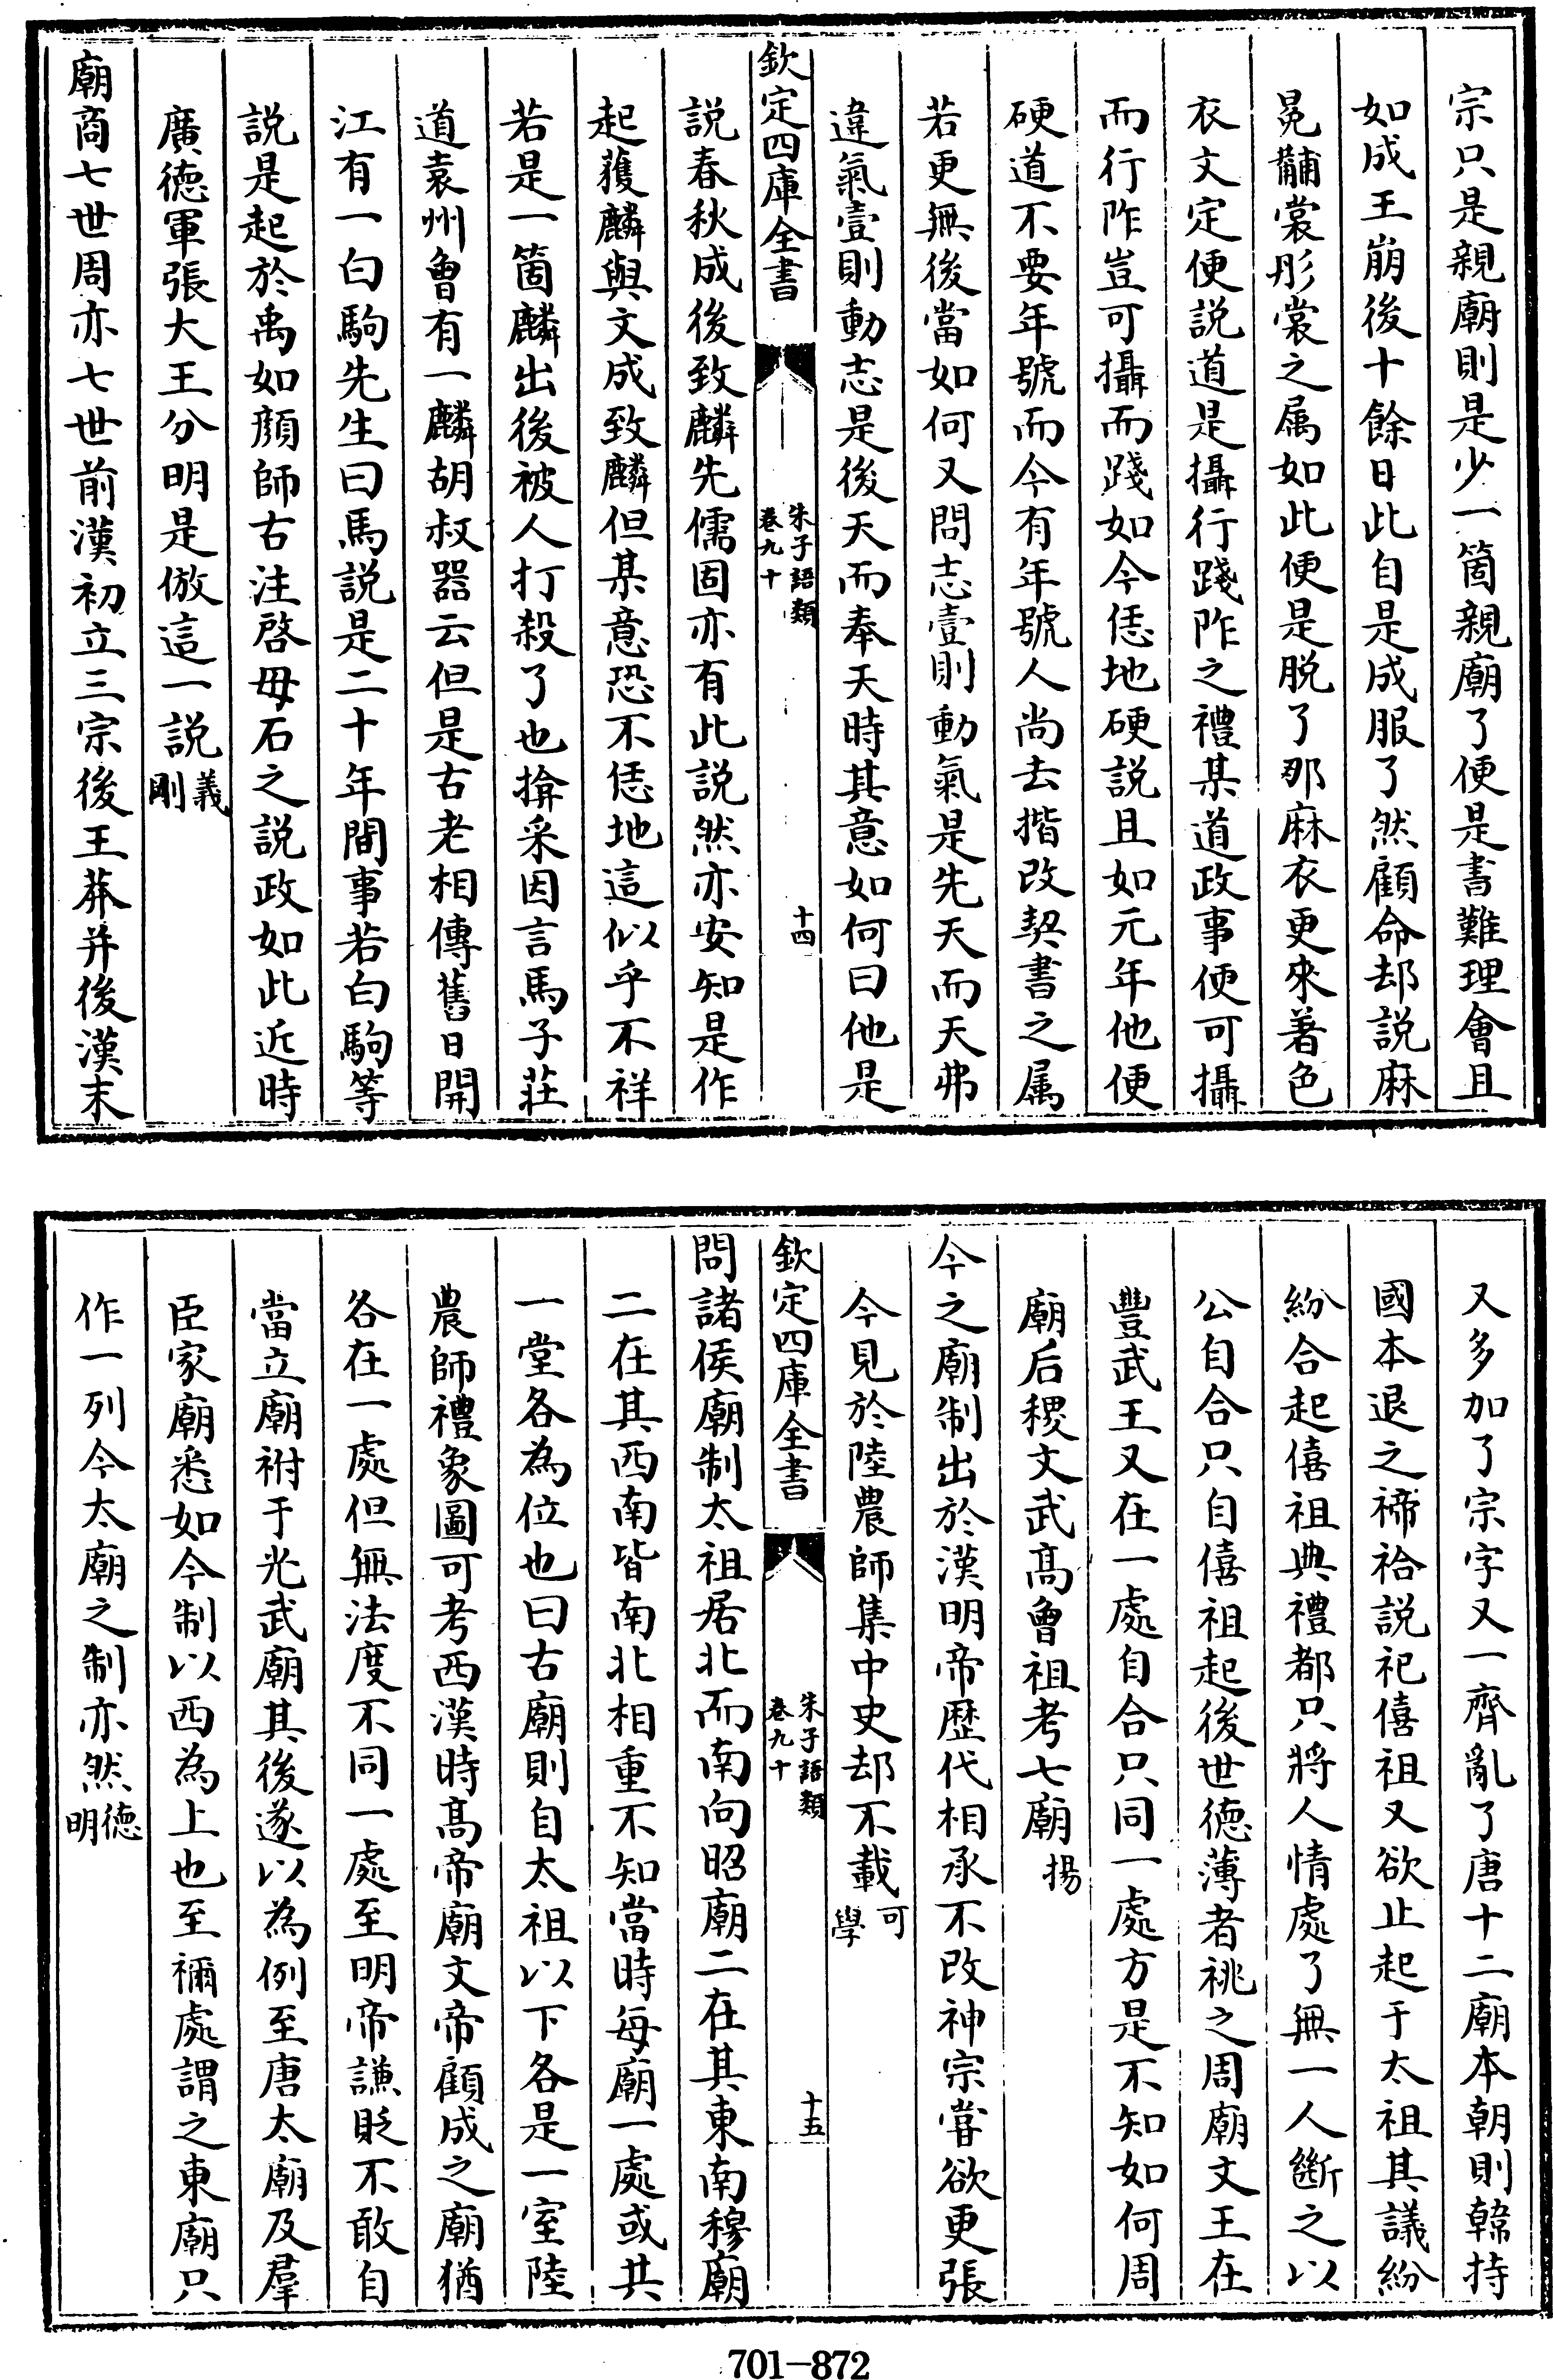 宗只是親廟則是少一箇親廟了便是書難理會且
如成王崩後十餘日此自是成服了然顧命却説麻
冕黼裳彤裳之属如此便是脱了那麻衣更來著色
衣文定便説道是攝行踐阼之禮某道政事便可攝
而行阼豈可攝而踐如今恁地硬説且如元年他便
硬道不要年號而今有年號人尚去揩改契書之属
若更無後當如何又問志壹則動氣是先天而天弗
違氣壹則動志是後天而奉天時其意如何曰他是
欽定四庫全書
朱子語類
卷九十
十四
説春秋成後致麟先儒固亦有此説然亦安知是作
起獲麟與文成致麟但某意恐不恁地這似乎不祥
若是一箇麟出後被人打殺了也揜采因言馬子莊
道袁州曾有一麟胡叔器云但是古老相傳舊日開
江有一白駒先生曰馬説是二十年間事若白駒等
説是起於禹如顔師古注啓母石之説政如此近時
廣徳軍張大王分明是倣這一説義剛
廟商七世周亦七世前漢初立三宗後王莽并後漢末
又多加了宗字又一齊亂了唐十二廟本朝則韓持
國本退之禘祫説祀僖祖又欲止起于太祖其議紛
紛合起僖祖典禮都只將人情處了無一人斷之以
公自合只自僖祖起後世徳薄者祧之周廟文王在
豐武王又在一處自合只同一處方是不知如何周
廟后稷文武髙曾祖考七廟揚
今之廟制出於漢明帝歴代相承不改神宗嘗欲更張
今見於陸農師集中史却不載可學
欽定四庫全書
朱子語類
卷九十
十五
問諸侯廟制太祖居北而南向昭廟二在其東南穆廟
二在其西南皆南北相重不知當時每廟一處或共
一堂各為位也曰古廟則自太祖以下各是一室陸
農師禮象圖可考西漢時髙帝廟文帝顧成之廟猶
各在一處但無法度不同一處至明帝謙貶不敢自
當立廟祔于光武廟其後遂以為例至唐太廟及羣
臣家廟悉如今制以西為上也至禰處謂之東廟只
作一列今太廟之制亦然徳明
701-872